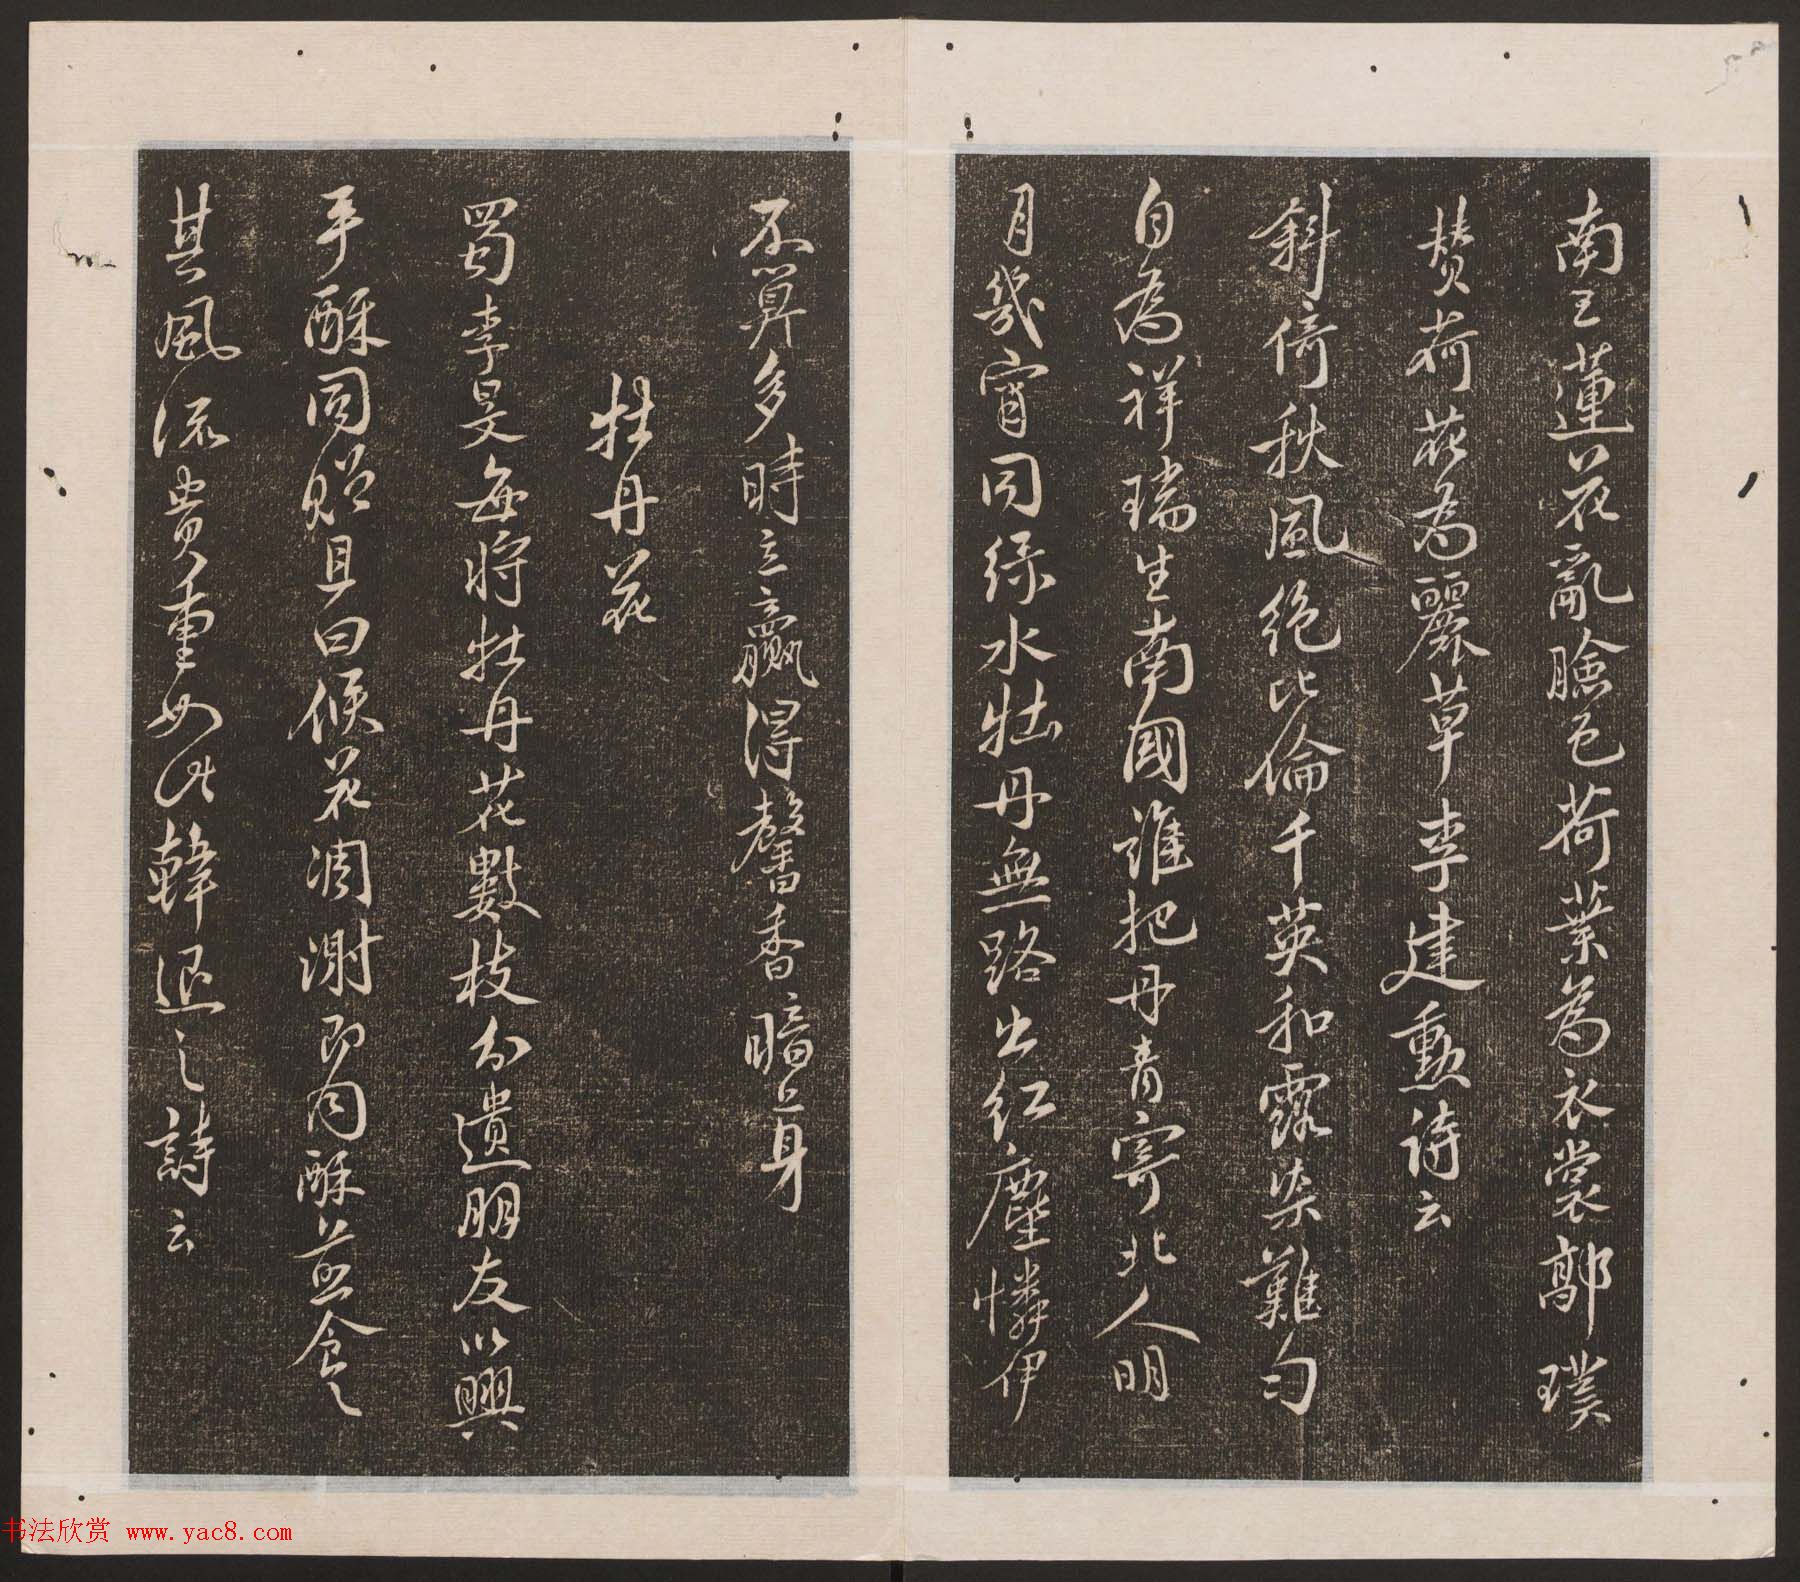 南王蓮花亂臉色荷葉為衣裳鄗璞
賛荷花為麗草李建勳詩云
斜倚秋風絶比倫千英和露染難勻
自為祥瑞生南國誰把丹青寄北人明
月幾宵同緑水牡丹無路出紅塵憐伊
不算多時立贏得馨香暗上身
牡丹花
蜀李昊每將牡丹花數枝分遺朋友以興
平酥同贈且曰候花凋謝即以酥煎食之
其風流貴重如此韓退之詩云
书法欣赏 www.yac8.com